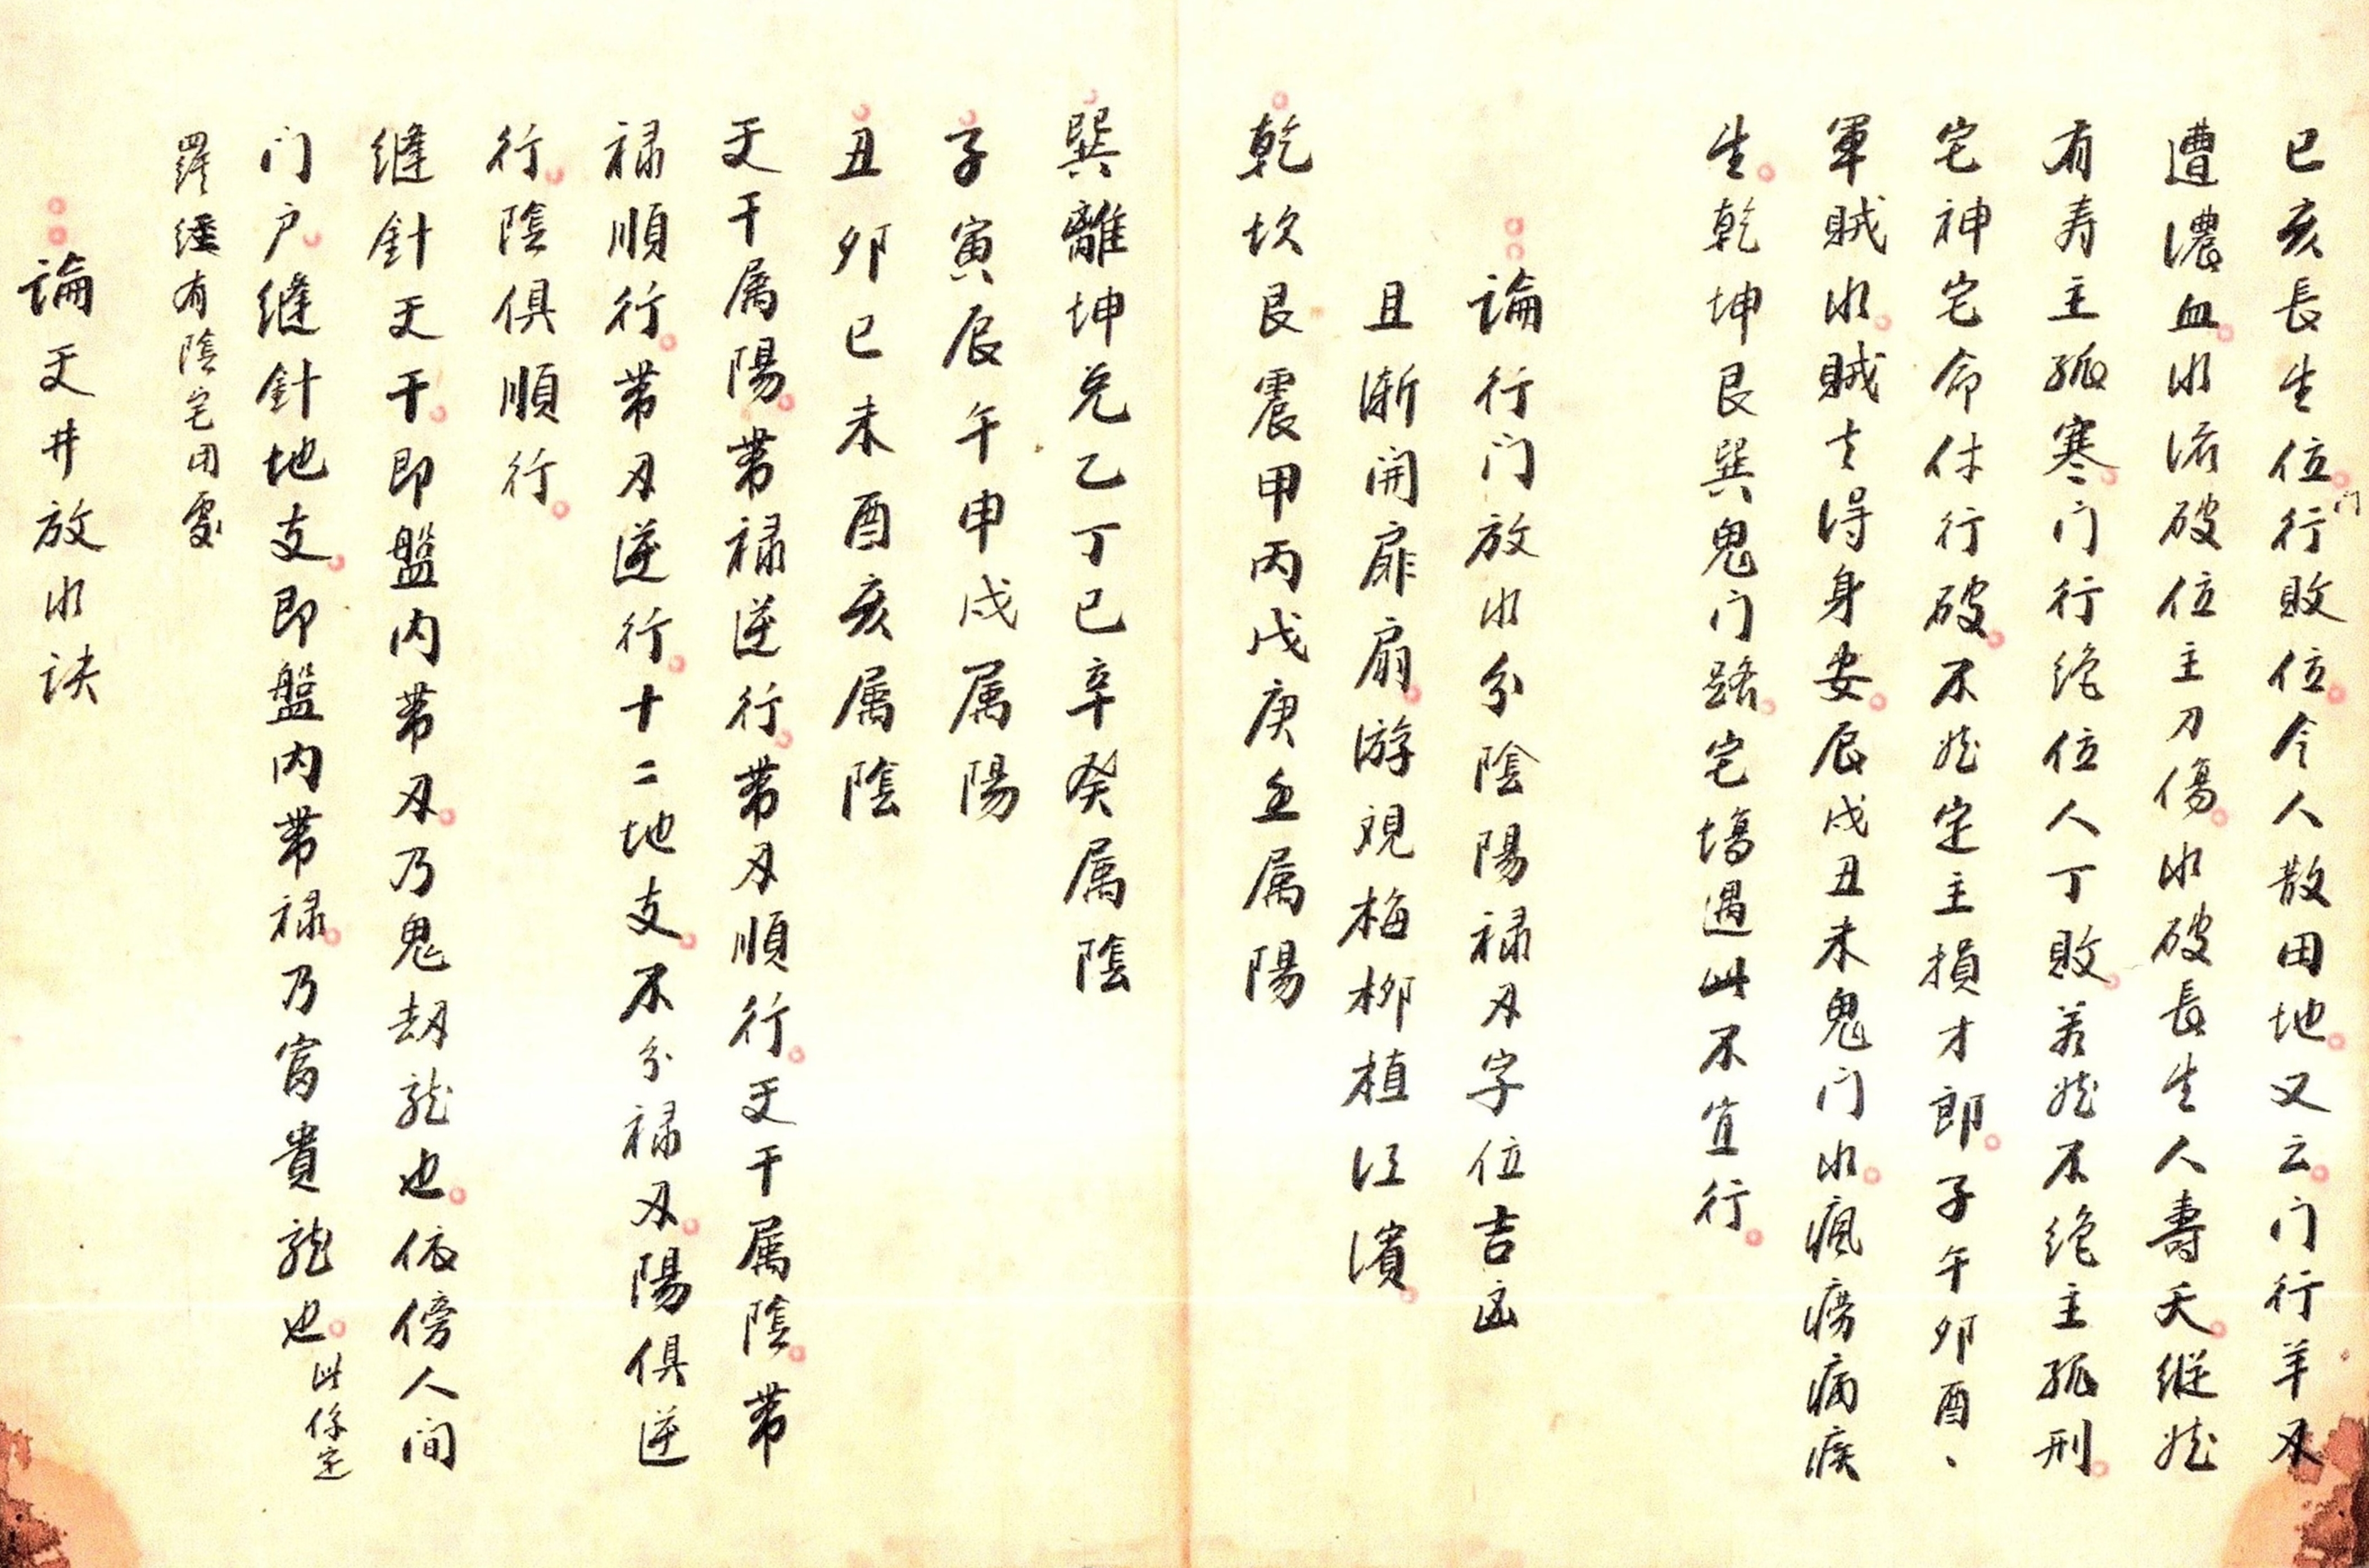 巳亥長生位门行敗位令人散田地又云门行羊刃
遭濃血水流破位主刀傷水破長生人壽夭縱然
有寿主孤寒门行绝位人丁敗若然不绝主孤刑
宅神宅命休行破不然定主損才郎子午卯酉、
軍賊水賊去得身安辰戌丑未鬼门水瘋痨病疾
生乾坤艮巽鬼门路宅塲遇此不宜行
論行门放水分陰陽禄刃字位吉凶
且漸開扉扇游观梅柳植江濱
乾坎艮震甲丙戊庚壬属陽
巽離坤兑乙丁己辛癸属陰
子寅辰午申戌属陽
丑卯巳未酉亥属陰
天干属陽带禄逆行带刃順行天干属陰带
禄順行带刃逆行十二地支不分禄刃陽俱逆
行陰俱順行
缝針天干即盤内带刃乃鬼劫龍也依傍人间
门户缝針地支即盤内带禄乃富貴龍也此係定
羅经有陰宅用處
論天井放水訣